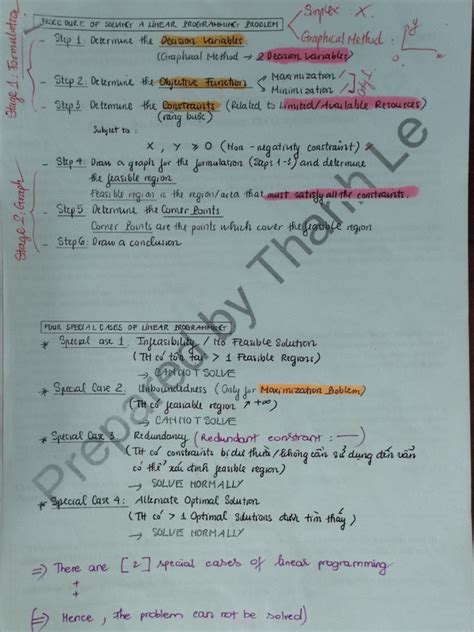 PROCEDURE OF SOLVING A LINEAR PROGRAMMING PROBLEM
Simplex : X.
Graphical Method :
y
x
Stage 1: Formulation
- Step 1: Determine the Decision Variables
(Graphical Method → 2 Decision Variables)
- Step 2: Determine the Objective Function
Maximization
Minimization
- Step 3: Determine the Constraints (Related to Limited/Available Resources)
(ràng buộc)
Subject to :
X, Y ≥ 0 (Non-negativity constraint)
Stage 2: Graph
- Step 4: Draw a graph for the formulation (Steps 1-3) and determine
the feasible region
Feasible region is the region/area that must satisfy all the constraints.
- Step 5: Determine the Corner Points
Corner Points are the points which cover the feasible region
- Step 6: Draw a conclusion
Prepared by Thanh Le
FOUR SPECIAL CASES OF LINEAR PROGRAMMING
* Special case 1: Infeasibility / No Feasible Solution
(TH có tồn tại > 1 Feasible Regions)
↳ CANNOT SOLVE
* Special Case 2: Unboundedness (Only for Maximization Problem)
(TH có feasiable region ↗ +∞)
↳ CANNOT SOLVE
* Special Case 3: Redundancy (Redundant constraint : —)
(TH có constraints bị dư thừa / không cần sử dụng đến vẫn
có thể xác định feasible region)
→ SOLVE NORMALLY
* Special Case 4: Alternate Optimal Solution
(TH có > 1 Optimal Solutions được tìm thấy)
→ SOLVE NORMALLY
⇒ There are [2] special cases of linear programming
+
+
(⇒ Hence, the problem can not be solved)